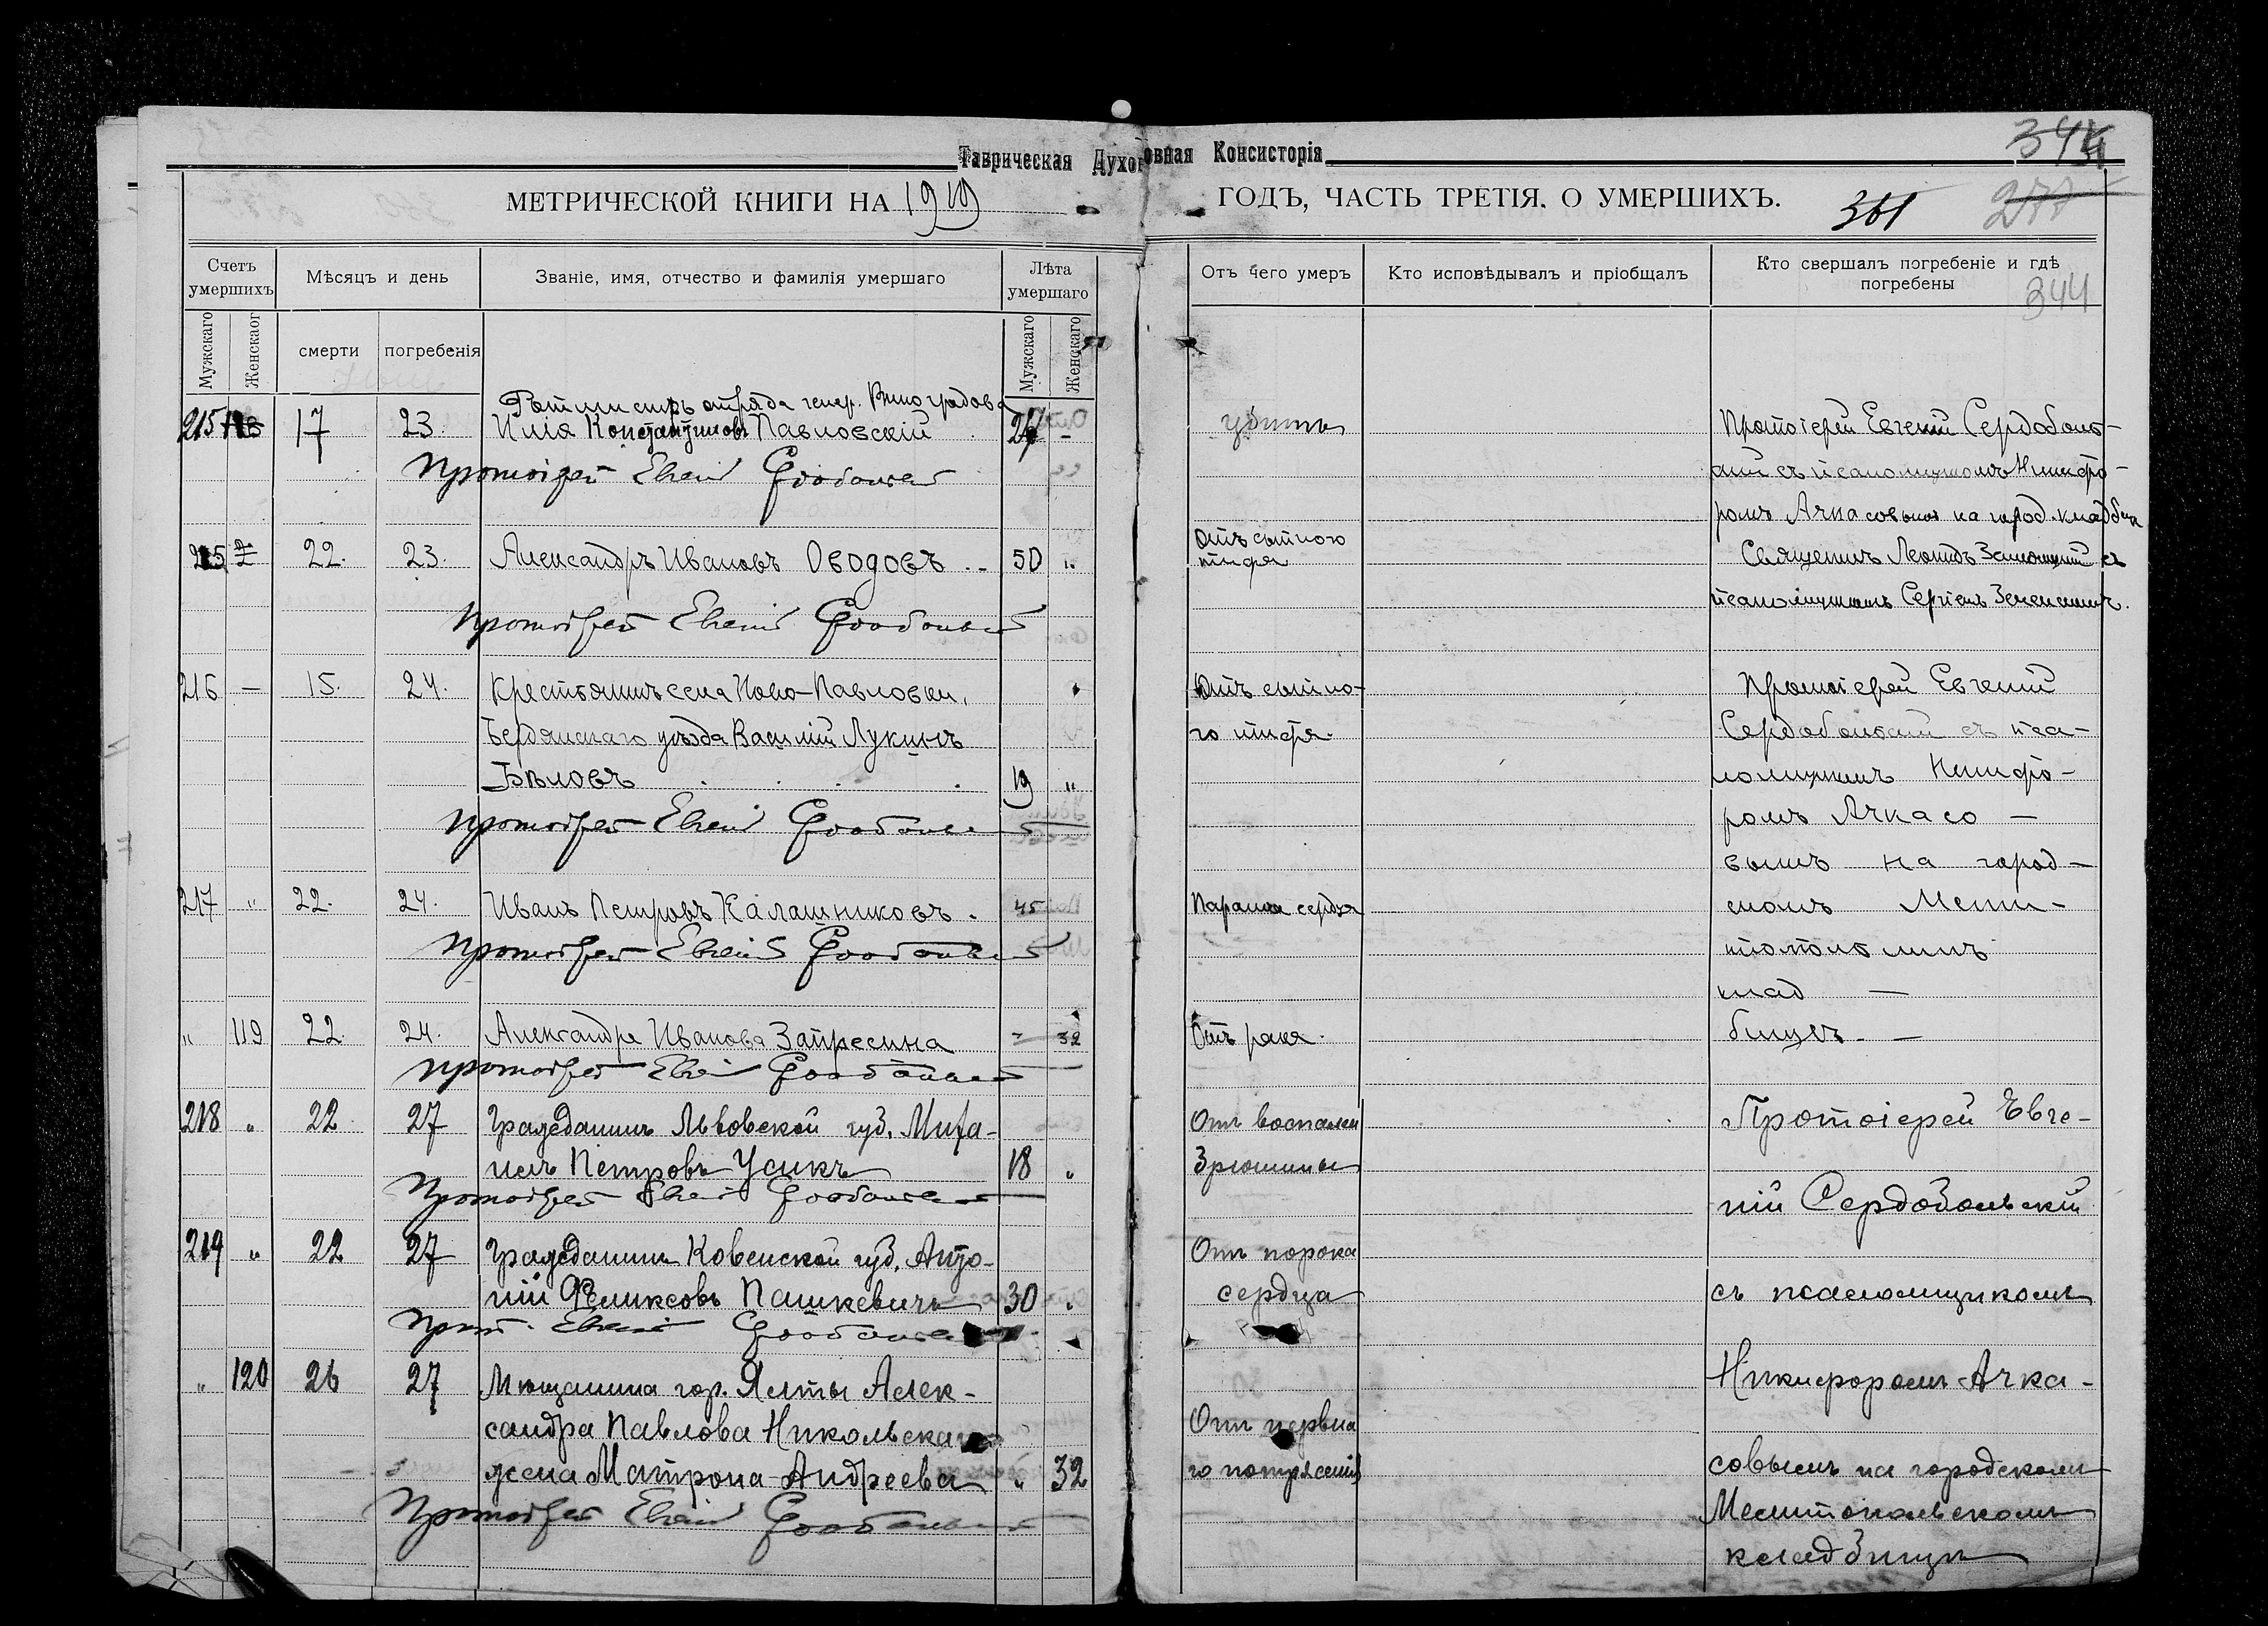 Таврическая Духовная Консисторія
344
МЕТРИЧЕСКОЙ КНИГИ НА 1919 ГОДЪ, ЧАСТЬ ТРЕТІЯ. О УМЕРШИХЪ.
361
277
Счетъ умершихъ
Мѣсяцъ и день
Званіе, имя, отчество и фамилія умершаго
Лѣта умершаго
Отъ чего умеръ
Кто исповѣдывалъ и пріобщалъ
Кто свершалъ погребеніе и гдѣ погребены
344
Мужскаго
Женскаог
смерти
погребенія
Мужскаго
Женскаго
Ротмистръ отряда генер. Виноградова
215 17 23 Илія Константиновъ Павловскій -
убитъ
Протоіерей Евгеній Сердоболь-
скій съ псаломщикомъ Никифо-
ромъ Ачкасовымъ на город. кладбищ
Протоіерей Евгеній Сердобольскій
22. 23. Александръ Ивановъ Оводовъ 50 "
Отъ сыпного
тифа
Священникъ Леонидъ съ
псаломщикомъ Сергіемъ
Протоіерей Евгеній Сердобольскій
216 — 15. 24. Крестьянинъ села Ново-Павловки,
Бердянскаго уѣзда Василій Лукинъ
Бѣловъ 19 "
Отъ сыпно-
го тифа.
Протоіерей Евгеній
Сердобольскій съ пса-
ломщикомъ Никифо-
ромъ Ачкасо —
вымъ на город —
Протоіерей Евгеній Сердобольскій
217 " 22. 24. Иванъ Петровъ Калашниковъ. 45
Параличъ сердца
скомъ Мели-
топольскомъ
клад —
Протоіерей Евгеній Сердобольскій
" 119 22. 24. Александра Иванова Запресина - 32
Отъ рака.
бищѣ. —
Протоіерей Евгеній Сердобольскій
218 " 22 27 Гражданинъ Львовской губ. Миха-
илъ Петровъ Усикъ 18 "
Отъ воспален
брюшины
Протоіерей Евге-
ній Сердобольскій
Протоіерей Евгеній Сердобольскій
219 " 22 27 Гражданинъ Ковенской губ. Анто-
ній Феликсовъ Пашкевичъ 30 "
Отъ порока
сердца
съ псаломщикомъ
Прот. Евгеній Сердобольскій
" 120 26 27 Мѣщанина гор. Ялты Алек-
сандра Павлова Никольскаго
жена Матрона Андреева " 32
Отъ нервна
го потрясенія
Никифоромъ Ачка-
совымъ на городскомъ
Мелитопольскомъ
кладбищѣ
Протоіерей Евгеній Сердобольскій